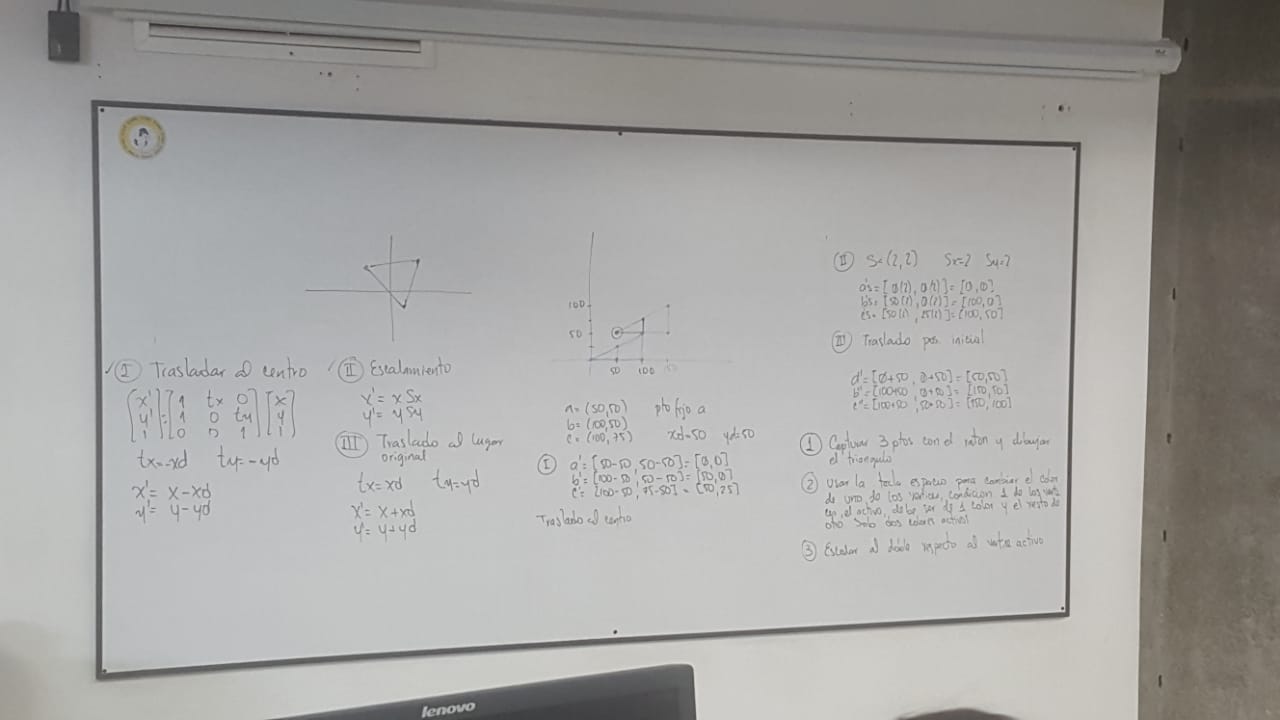 I Trasladar al centro
[x'] [1 tx 0] [x]
[y'] = [1 0 ty] [y]
[1] [0 0 1] [1]
tx=-xd ty=-yd
x'= x-xd
y'= y-yd
II Escalamiento
x'= x Sx
y'= y Sy
III Traslado al lugar
original
tx=xd ty=yd
x'= x+xd
y'= y+yd
100
50
50 100 150
a=(50,50) pto fijo a
b=(100,50)
c=(100,75) xd=50 yd=50
I a'=[50-50, 50-50]=[0,0]
b'=[100-50, 50-50]=[50,0]
c'=[100-50, 75-50]=[50,25]
Traslado al centro
II S=(2,2) Sx=2 Sy=2
a's=[0(2), 0(2)]=[0,0]
b's=[50(2), 0(2)]=[100,0]
c's=[50(2), 25(2)]=[100,50]
III Traslado pos. inicial
a''=[0+50, 0+50]=[50,50]
b''=[100+50, 0+50]=[150,50]
c''=[100+50, 50+50]=[150,100]
1 Capturar 3 ptos con el raton y dibujar
el triangulo
2 Usar la tecla espacio para cambiar el color
de uno de los vertices, condicion 1 de los
el activo, debe ser de 1 color y el resto de
otro Solo dos colores activos
3 Escalar al doble respecto al vertice activo
lenovo